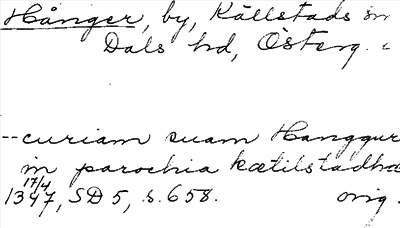 Hånger, by, Källstads sn
Dals hd, Österg.
--curiam suam Hanggur
in parochia kætilstadha
17/4
1347, SD 5, s. 658. orig.